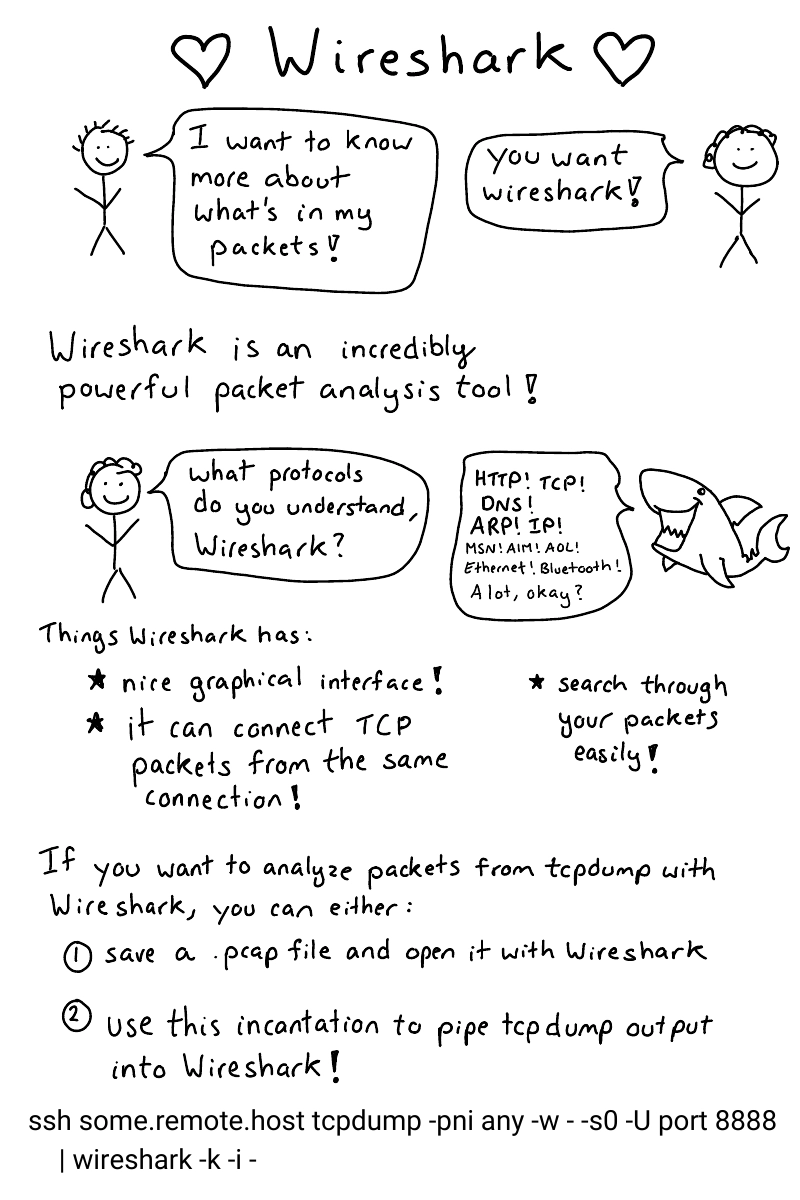 ♡ Wireshark ♡
I want to know
more about
what's in my
packets!
You want
wireshark!
Wireshark is an incredibly
powerful packet analysis tool!
what protocols
do you understand,
Wireshark?
HTTP! TCP!
DNS!
ARP! IP!
MSN! AIM! AOL!
Ethernet! Bluetooth!
A lot, okay?
Things Wireshark has:
★ nice graphical interface!
★ it can connect TCP
packets from the same
connection!
★ search through
your packets
easily!
If you want to analyze packets from tcpdump with
Wireshark, you can either:
① save a .pcap file and open it with Wireshark
② use this incantation to pipe tcpdump output
into Wireshark!
ssh some.remote.host tcpdump -pni any -w - -s0 -U port 8888
| wireshark -k -i -